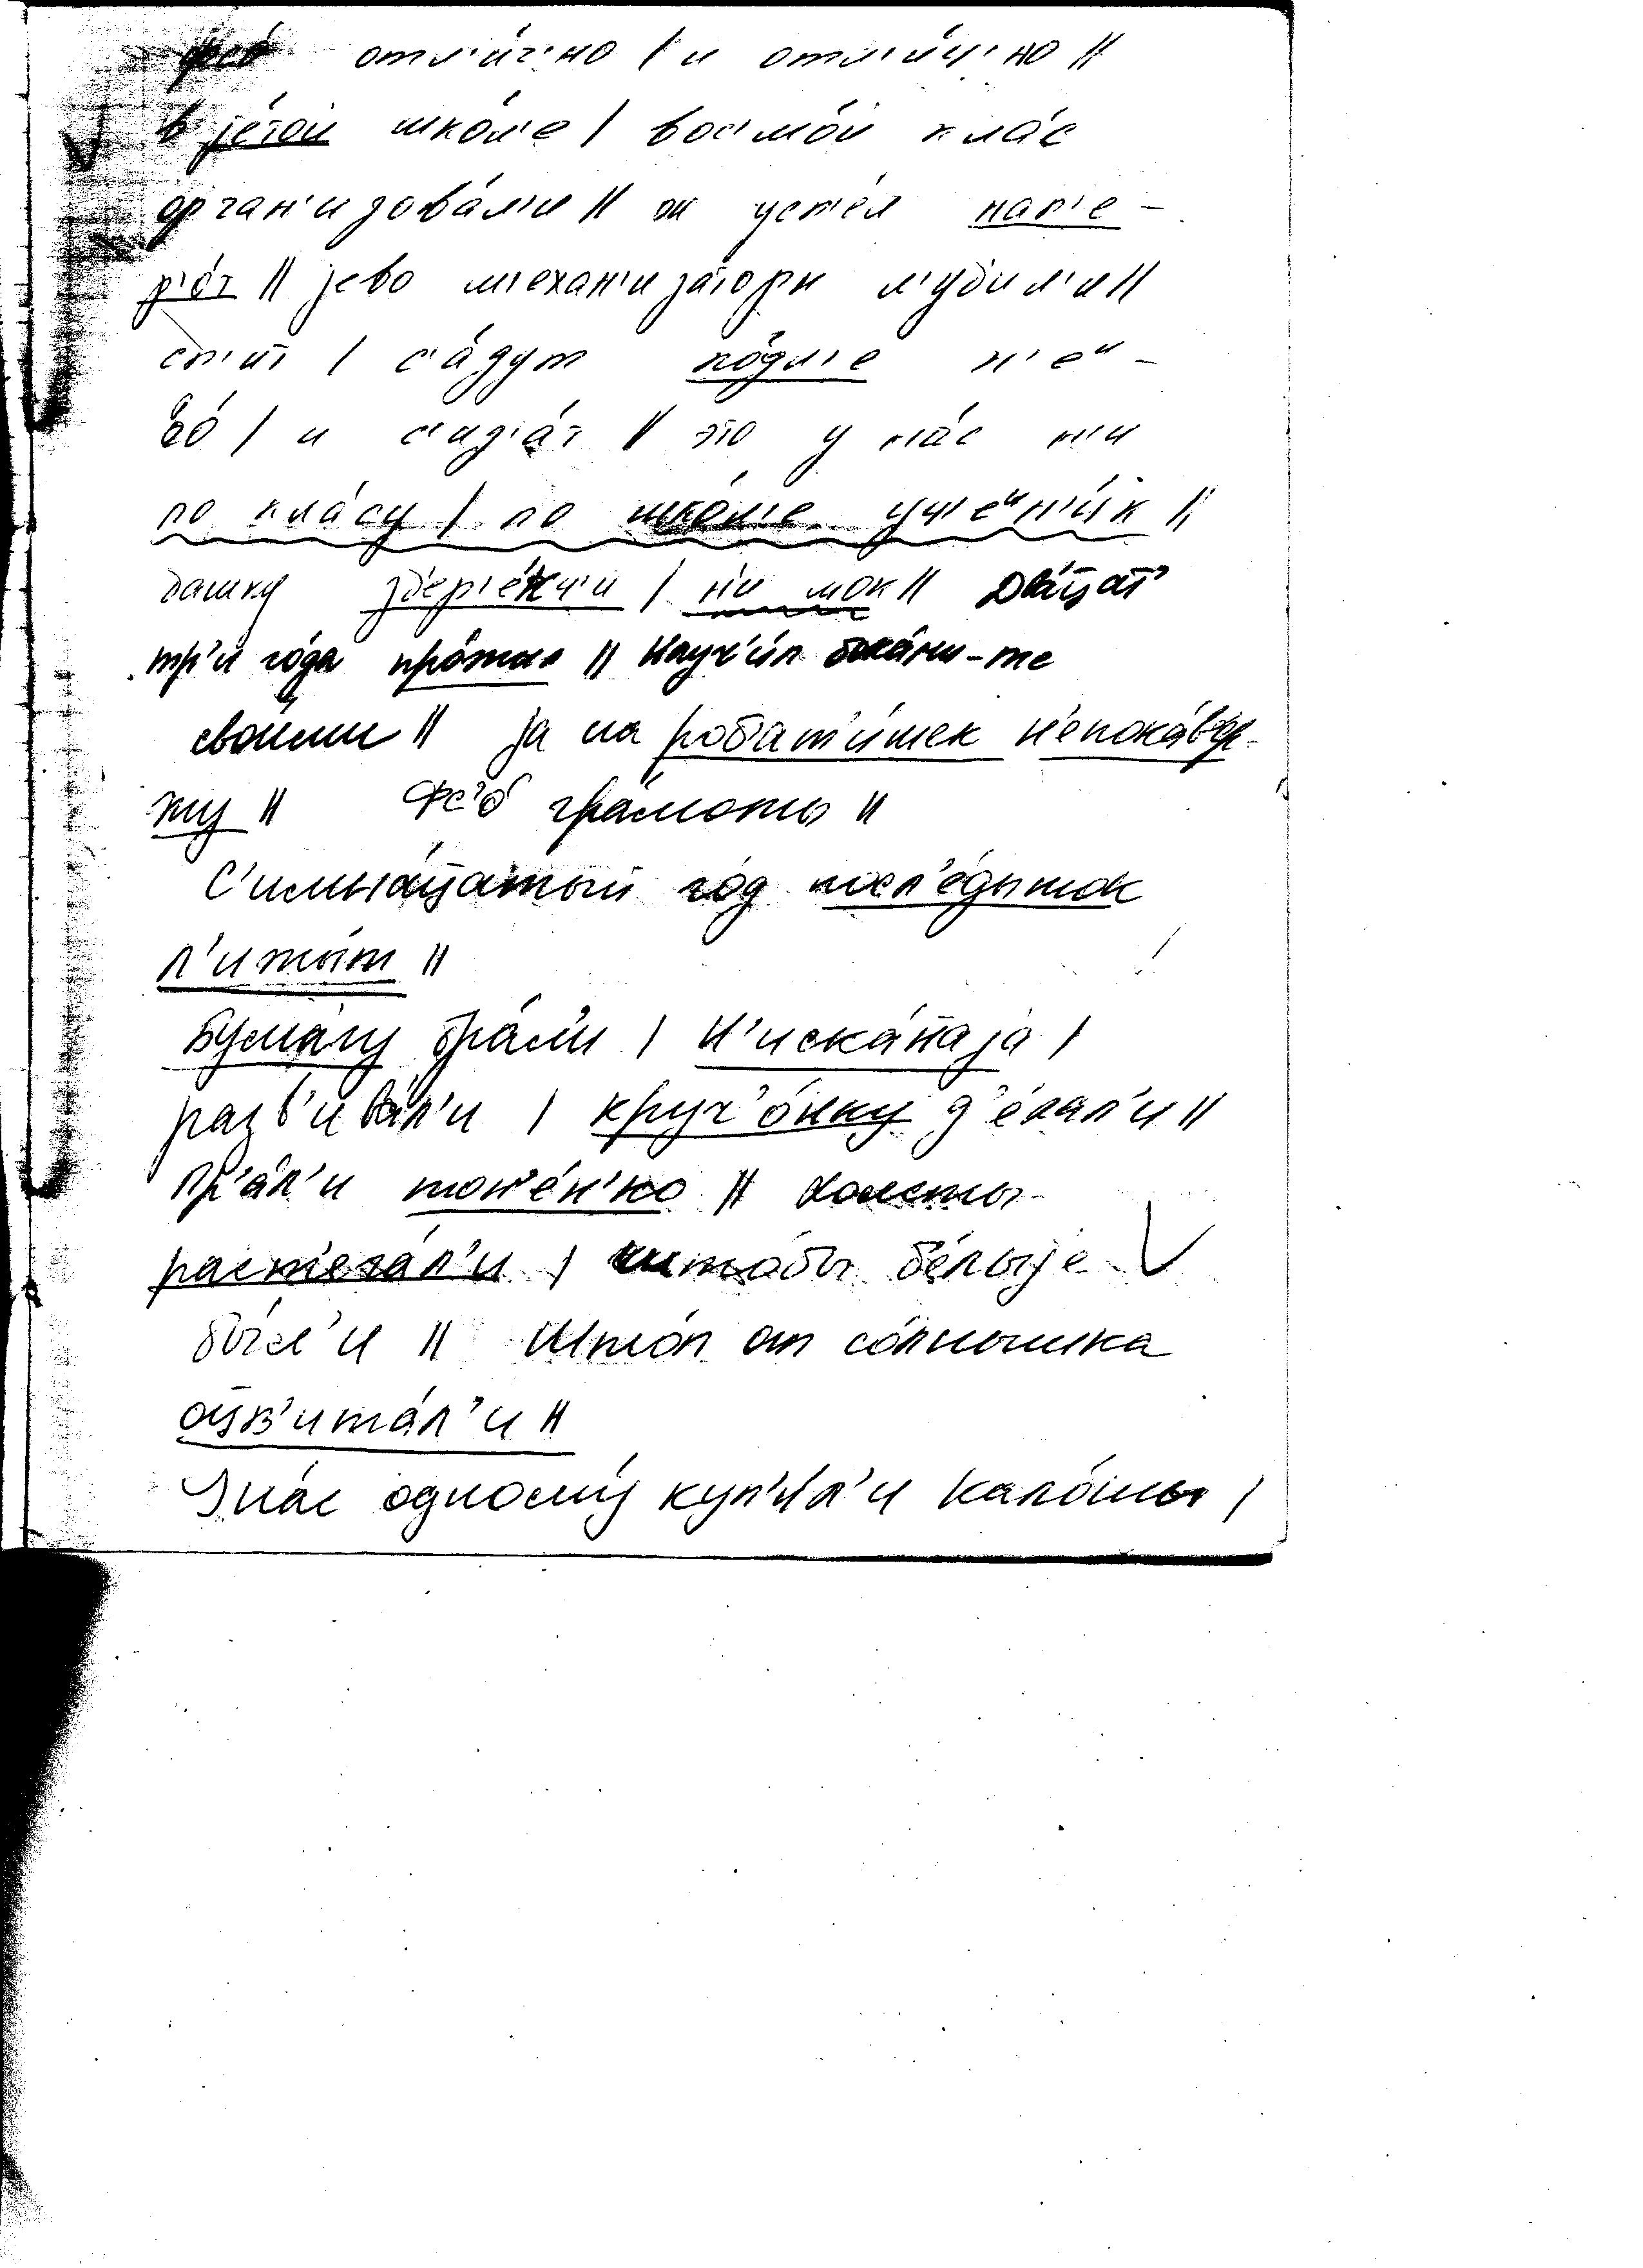 фс'о́ отл'и́ч'но | и отл'и́ч'но ||
в jе́той шко́л'е | вос'мо́й кла́с
орган'изова́л'и || ж успе́л нап'е-
р'о́т || jево м'ехан'иза́торы л'уби́л'и ||
сп'ит | с'а́дут по́дл'е н'еᵘ-
во́ | и с'ид'а́т || это у на́с
по кла́су | по шко́л'е уч'еᵘн'и́к ||
башку зб'ер'е́кч'и | н'и мок || Два́ц̅ат'
тр'и го́да про́жил || Науч'и́л -те
свои́ми || jа на робат'и́шек н'епока́вер-
жу || Фс'о́ гра́моты ||
С'имна́ц̅атый го́д посл'е́дыток
л'ижы́т ||
Бума́гу бра́ли | н'иска́па jа |
разв'ива́л'и | круч'о́нку д'е́лал'и ||
Пр'а́л'и тон'е́н'ко || холсты
раст'ега́л'и | штобы б'е́лыjе
бы́л'и || Што́п от со́лнышка
оц̅в'ита́л'и ||
У на́с одному́ куп'и́л'и кало́шы |